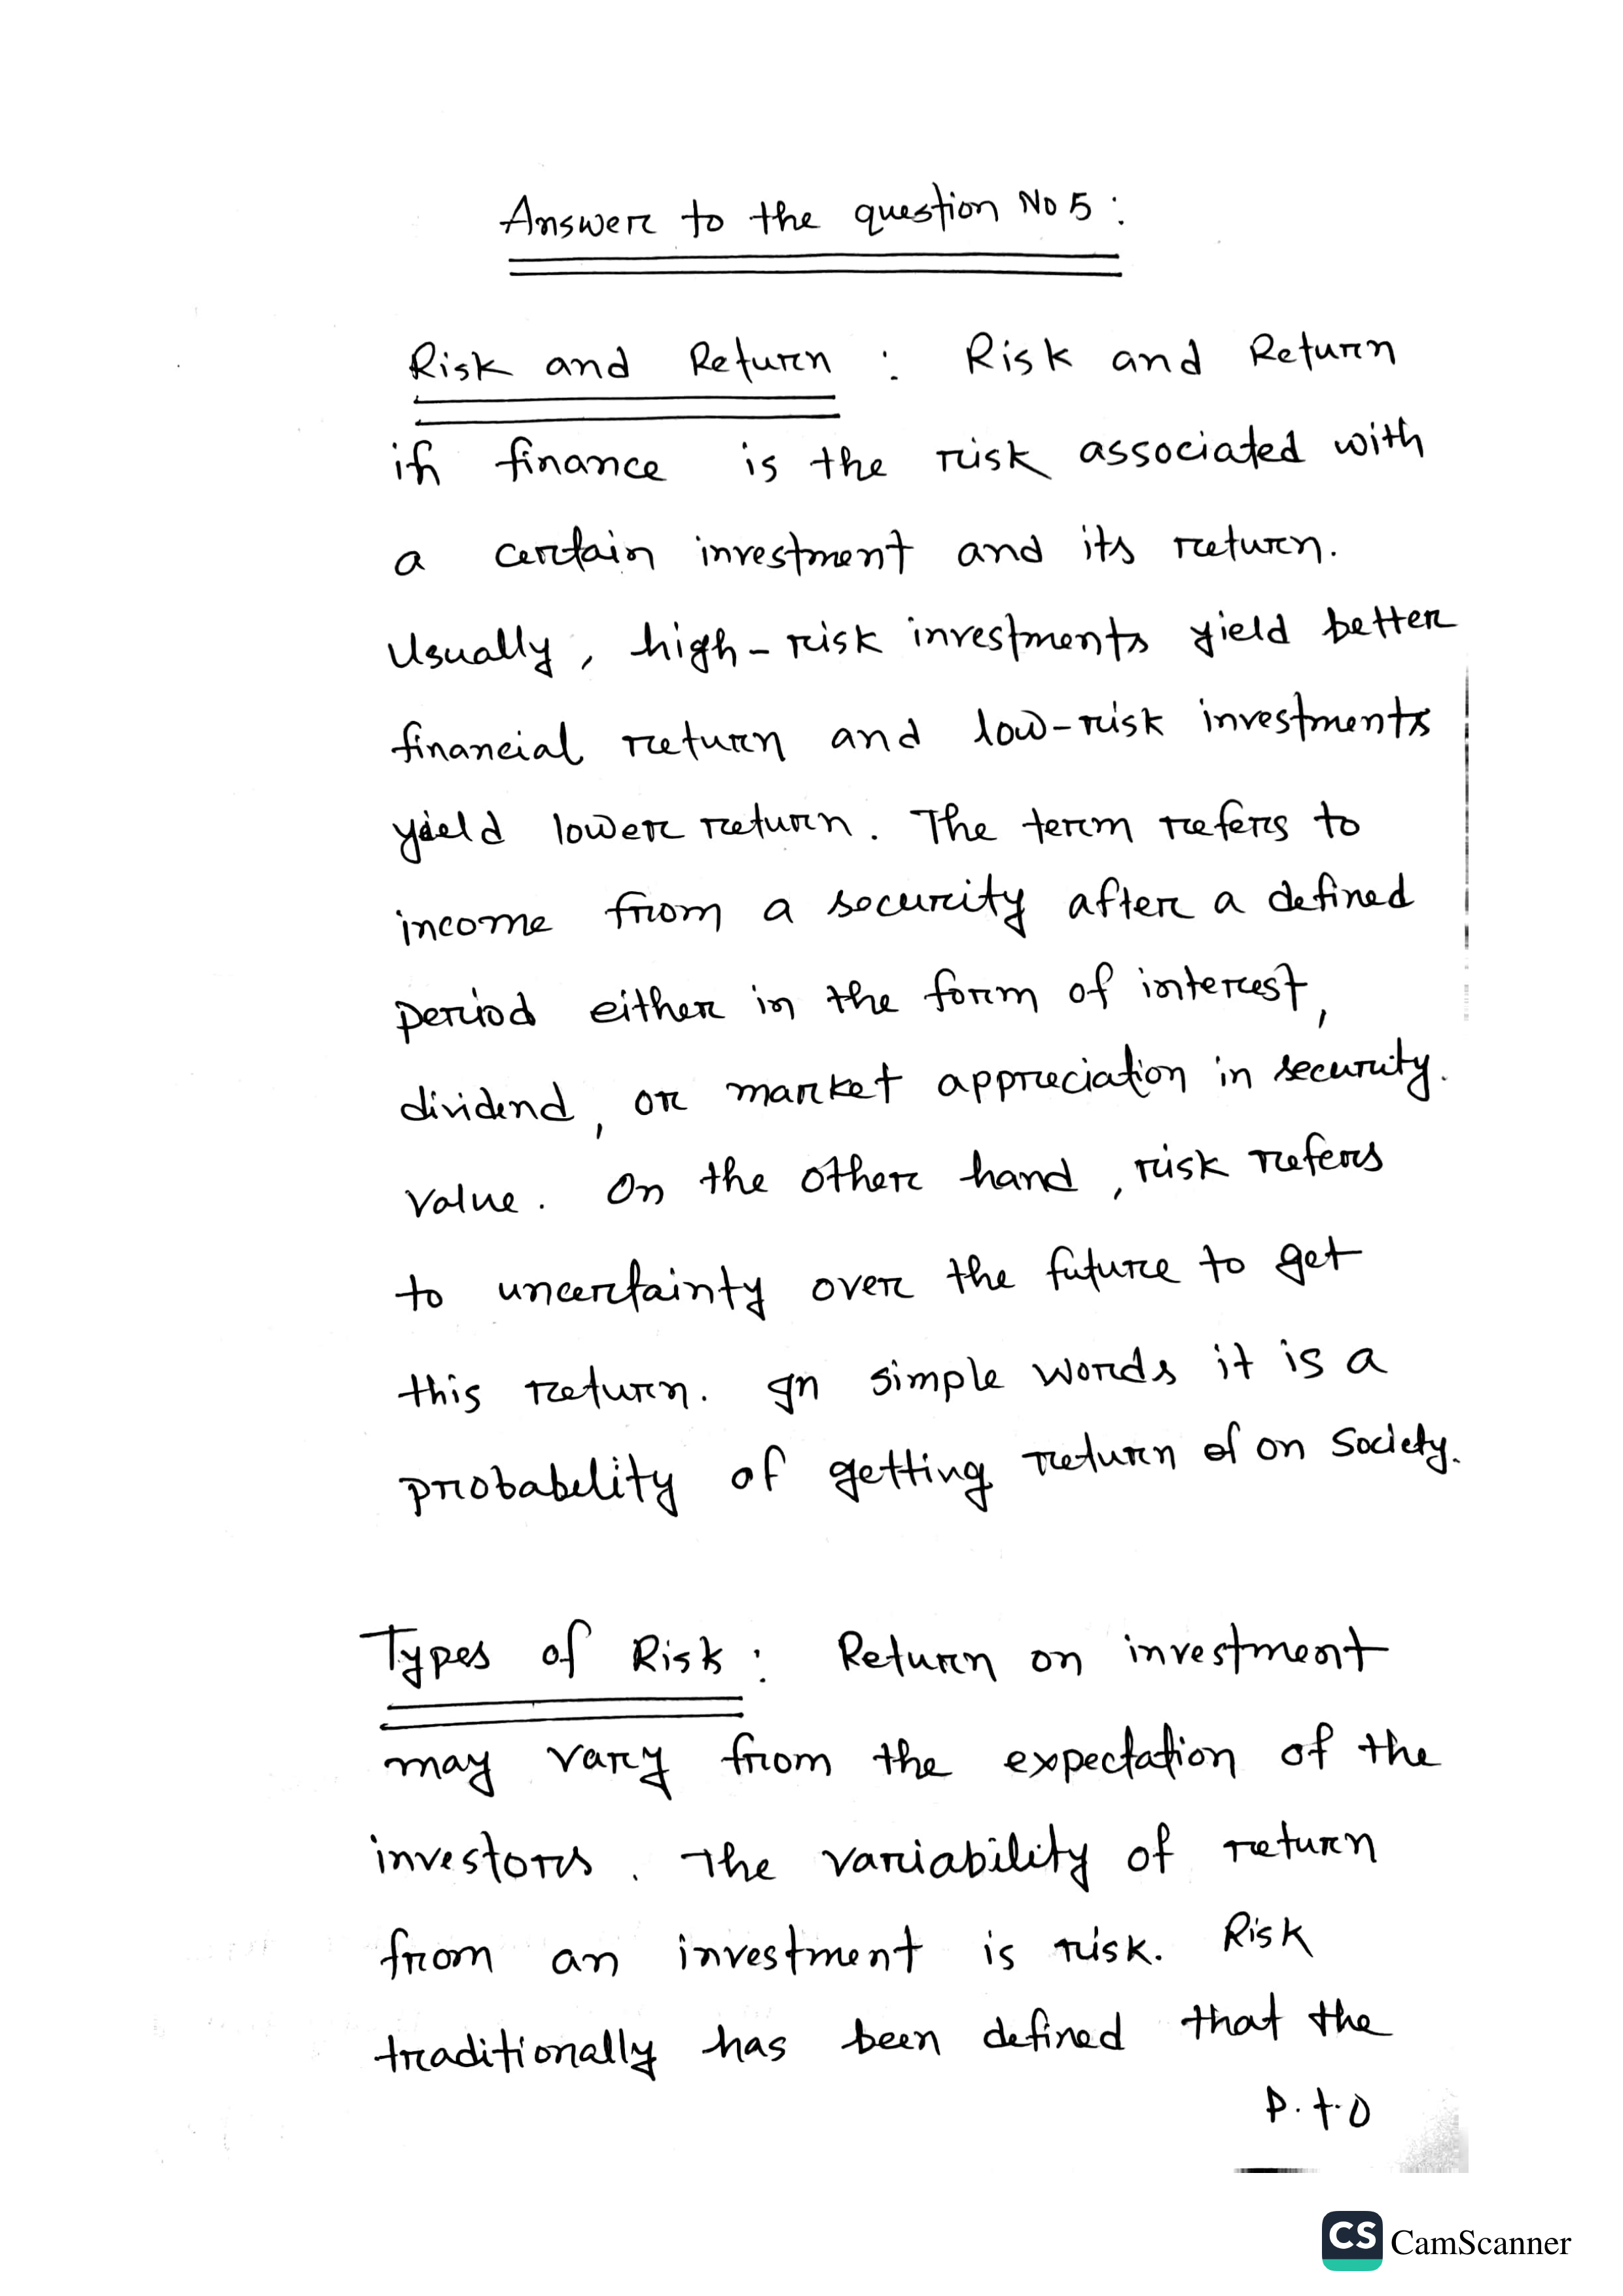 Answer to the question No 5 :
Risk and Return : Risk and Return
in finance is the risk associated with
a certain investment and its return.
Usually, high-risk investments yield better
financial return and low-risk investments
yield lower return. The term refers to
income from a security after a defined
period either in the form of interest,
dividend, or market appreciation in security.
value. On the other hand, risk refers
to uncertainty over the future to get
this return. In simple words it is a
probability of getting return of on society.
Types of Risk : Return on investment
may vary from the expectation of the
investors. The variability of return
from an investment is risk. Risk
traditionally has been defined that the
P.t.O
CS CamScanner